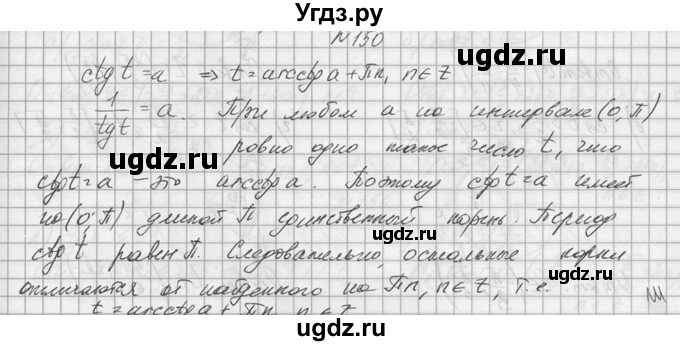 Угдз.ру
N150
ctg t = a ⇒ t = arcctg a + Пn, n ∈ Z
1/tg t = a. При любом a на интервале (0; П)
ровно одно такое число t, что
ctg t = a – это arcctg a. Поэтому ctg t = a имеет
на (0; П) длиной П единственный корень. Период
ctg t равен П. Следовательно, остальные корни
отличаются от найденного на Пn, n ∈ Z, т.е.
t = arcctg a + Пn, n ∈ Z
ugdz.ru
ugdz.ru
ugdz.ru
ugdz.ru
ugdz.ru
ugdz.ru
ugdz.ru
ugdz.ru
ugdz.ru